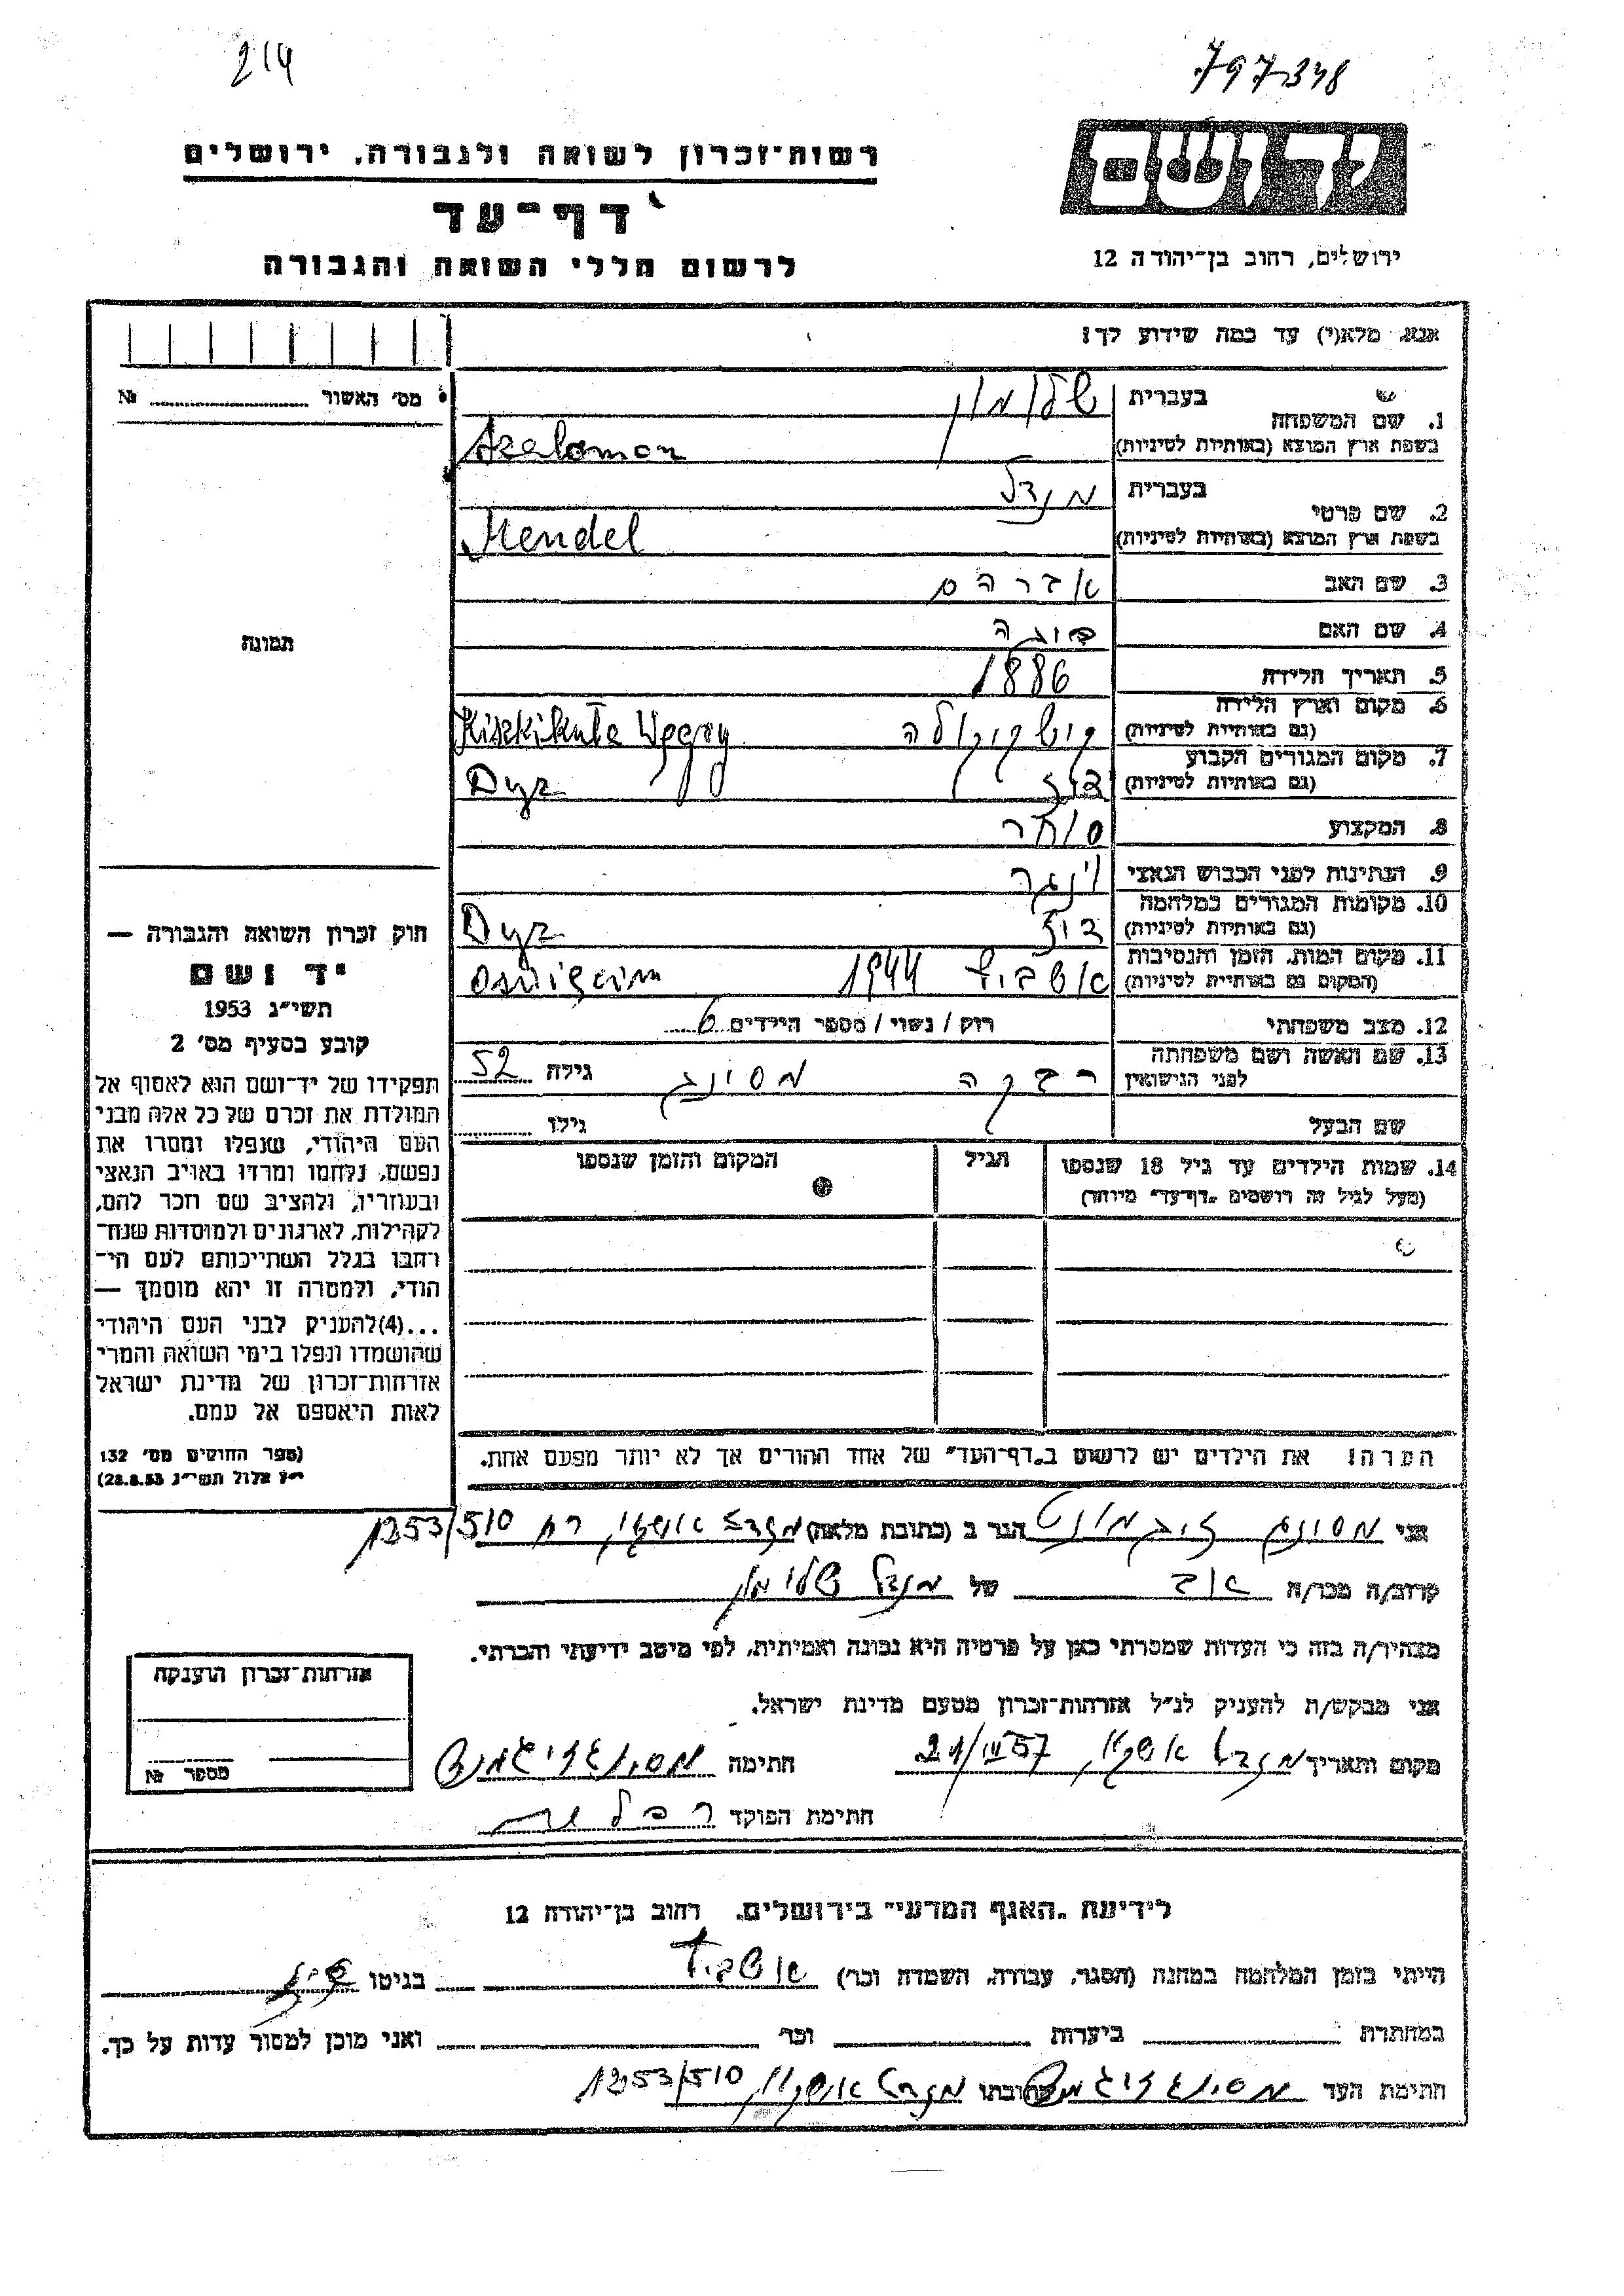 214
797348
יד ושם
רשות־זכרון לשואה ולגבורה, ירושלים
דף־עד
לרשום חללי השואה והגבורה
ירושלים, רחוב בן־יהודה 12
אנא, מלא(י) עד כמה שידוע לך!
מס׳ האשור № 
1. שם המשפחה
בעברית שלומון
בשפת ארץ המוצא (באותיות לטיניות) Szalamon
2. שם פרטי
בעברית מנדל
בשפת ארץ המוצא (באותיות לטיניות) Mendel
3. שם האב אברהם
4. שם האם
5. תאריך הלידה 1886
6. מקום וארץ הלידה
(גם באותיות לטיניות)
7. מקום המגורים הקבוע
(גם באותיות לטיניות) Dyz
8. המקצוע סוחר
9. הנתינות לפני הכבוש הנאצי
10. מקומות המגורים במלחמה
(גם באותיות לטיניות) Dyz
11. מקום המות, הזמן והנסיבות
(המקום גם באותיות לטיניות) אושביץ 1944
12. מצב משפחתי רוק / נשוי / מספר הילדים 6
13. שם האשה ושם משפחתה
לפני הנישואין רבקה מסינג גילה 52
שם הבעל גילו
14. שמות הילדים עד גיל 18 שנספו
(מעל לגיל זה רושמים „דף־עד״ מיוחד)
הגיל
המקום והזמן שנספו
הערה! את הילדים יש לרשום ב„דף־העד״ של אחד ההורים אך לא יותר מפעם אחת.
תמונה
חוק זכרון השואה והגבורה —
יד ושם
תשי״ג 1953
קובע בסעיף מס׳ 2
תפקידו של יד־ושם הוא לאסוף אל
המולדת את זכרם של כל אלה מבני
העם היהודי, שנפלו ומסרו את
נפשם, נלחמו ומרדו באויב הנאצי
ובעוזריו, ולהציב שם וזכר להם,
לקהילות, לארגונים ולמוסדות שנח־
רחבו בגלל השתייכותם לעם הי־
הודי, ולמטרה זו יהא מוסמך —
...(4) להעניק לבני העם היהודי
שהושמדו ונפלו בימי השואה והמרי
אזרחות־זכרון של מדינת ישראל
לאות היאספם אל עמם.
(ספר החוקים מס׳ 132
י״ז אלול תשי״ג 28.8.53)
אני מסינג זיגמונט הגר ב (כתובת מלאה) מגדל אשקלון 1253/510
קרוב/ה מכר/ה של מנדל שלומון
מצהיר/ה בזה כי העדות שמסרתי כאן על פרטיה היא נכונה ואמיתית, לפי מיטב ידיעתי והכרתי.
אני מבקש/ת להעניק לנ״ל אזרחות־זכרון מטעם מדינת ישראל.
מקום ותאריך מגדל אשקלון 21/III 57 חתימה מסינג זיגמונט
חתימת הפוקד
אזרחות־זכרון הוענקה
מספר №
לידיעת „האגף המדעי״ בירושלים, רחוב בן־יהודה 12
הייתי בזמן המלחמה במחנה (הסגר, עבודה, השמדה וכר) אושביץ בגיטו
במחתרת ביערות וכר ואני מוכן למסור עדות על כך.
חתימת העד מסינג זיגמונט כתובתו מגדל אשקלון 1253/510